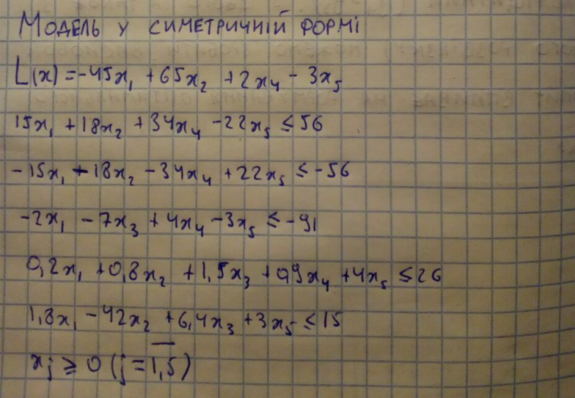 Модель у симетричній формі
L(x) = -45x₁ + 65x₂ + 2x₄ - 3x₅
15x₁ + 18x₂ + 34x₄ - 22x₅ ≤ 56
-15x₁ - 18x₂ - 34x₄ + 22x₅ ≤ -56
-2x₁ - 7x₃ + 4x₄ - 3x₅ ≤ -91
0,2x₁ + 0,8x₂ + 1,5x₃ + 0,9x₄ + 4x₅ ≤ 26
1,8x₁ - 42x₂ + 6,4x₃ + 3x₅ ≤ 15
xⱼ ≥ 0 (j = 1,5)